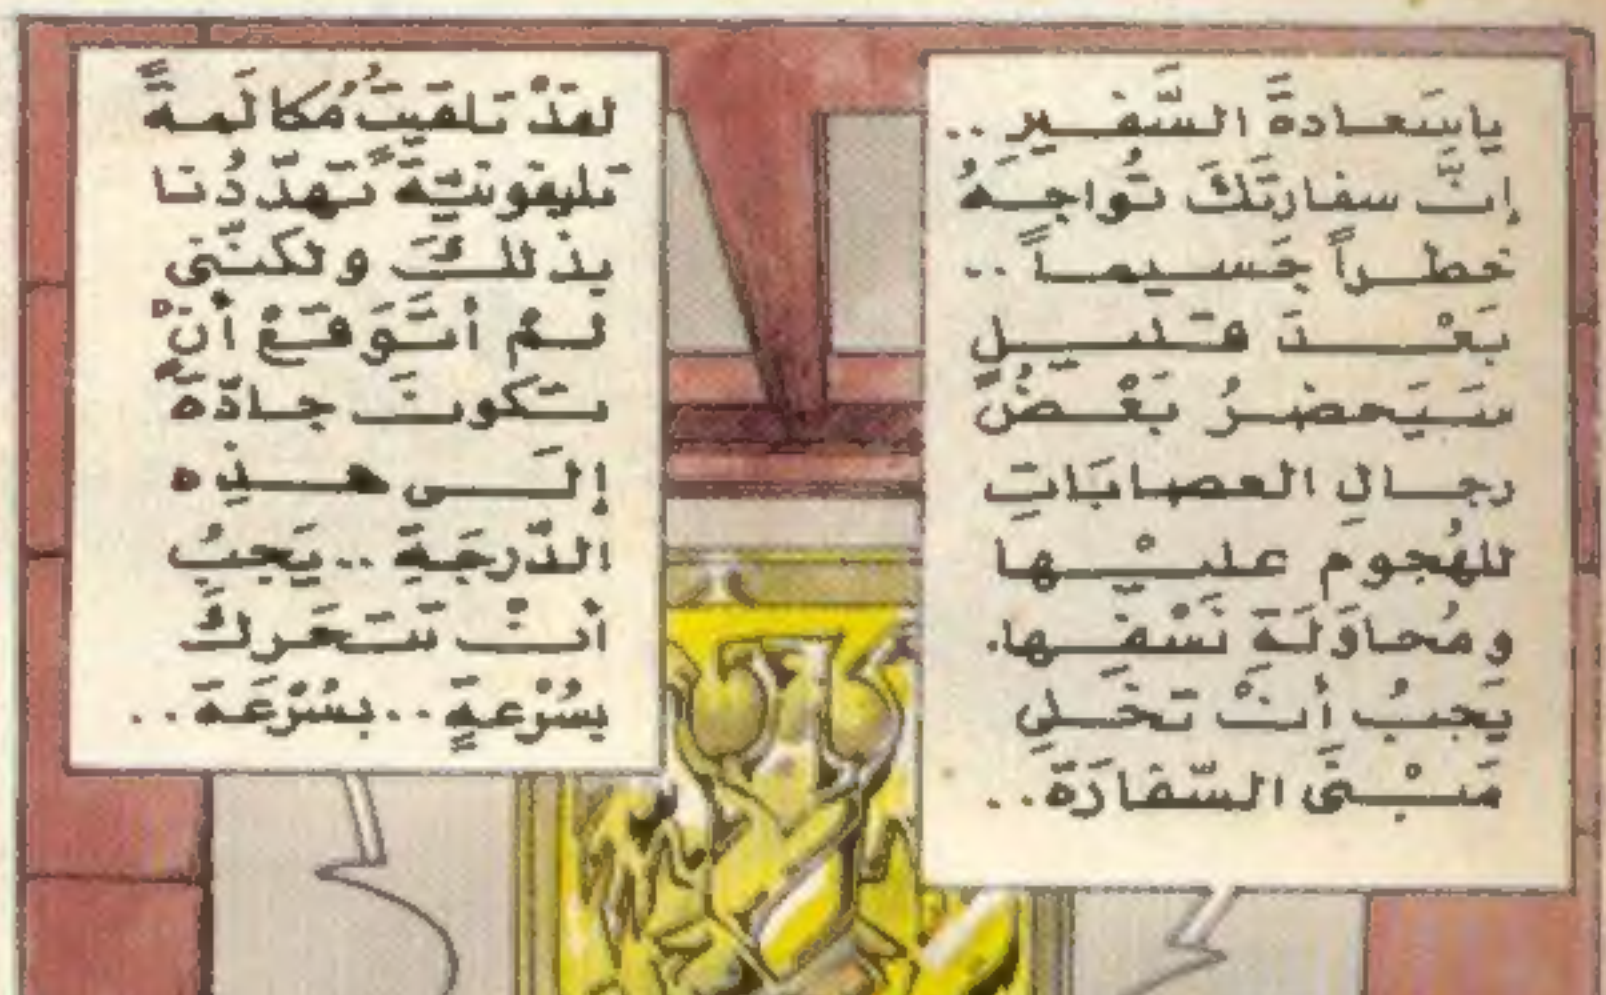 ياسَعادةَ السَّفير ..
إنَّ سفارتَكَ تُواجِهُ
خطراً جَسيماً ..
بَعْدَ قليلٍ
سَيَحضرُ بَعْضُ
رجالِ العصابَاتِ
للهُجومِ عليْها
ومُحاوَلَةِ نَسْفِها.
يَجبُ أنْ تَخلى
مَبْنَى السّفارَة ..
لقدْ تلقيتُ مُكالَمةً
تليفونيّةً تهدّدُنا
بذلكَ ولكنَّنى
لمْ أتَوَقعْ أنْ
تكونَ جادّة
إلَى هذِه
الدّرجَةِ .. يَجبُ
أنْ نتَحَركَ
بسُرْعةٍ .. بسُرْعَة ..